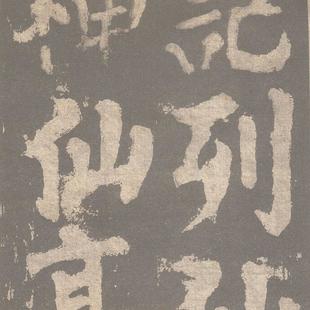 記列
神仙